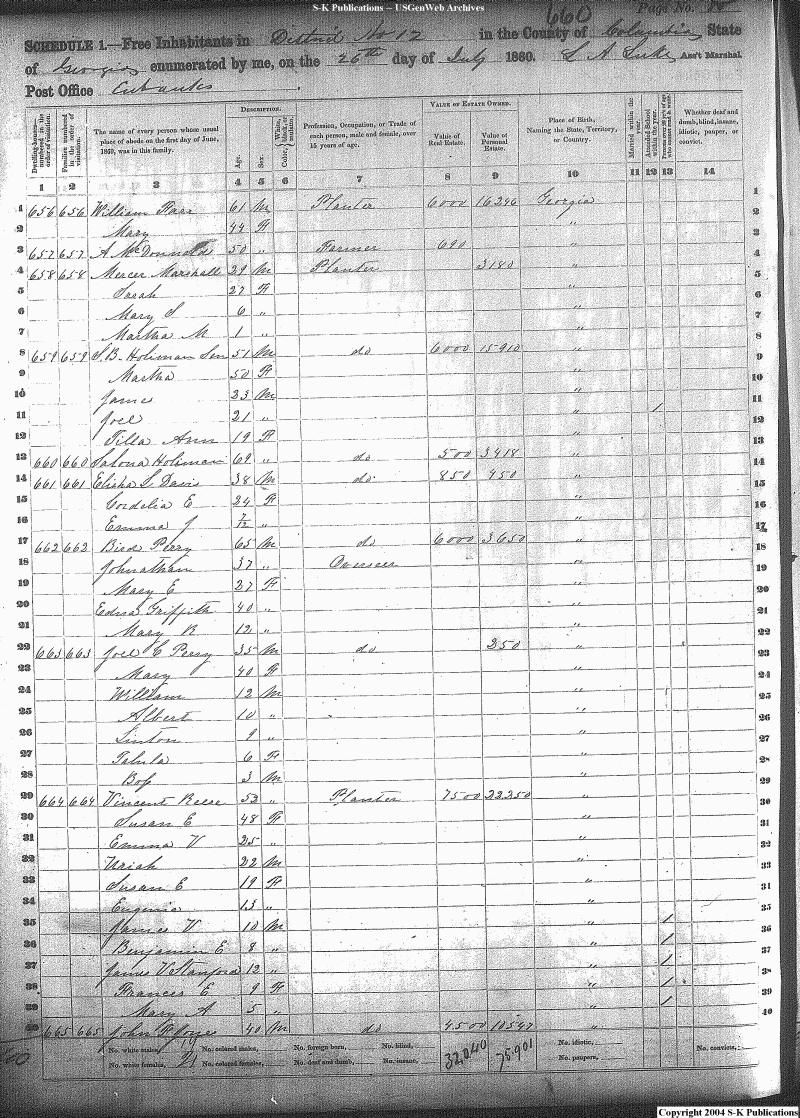 S-K Publications -- USGenWeb Archives
660
Page No.
SCHEDULE 1.—Free Inhabitants in District No 12 in the County of Columbia State
of Georgia enumerated by me, on the 26th day of July 1860. L A Luke Ass't Marshal.
Post Office Eubanks
DESCRIPTION. VALUE OF ESTATE OWNED.
Dwelling-houses numbered in the order of visitation. Families numbered in the order of visitation. The name of every person whose usual place of abode on the first day of June, 1860, was in this family. Age. Sex. Color, White, black, or mulatto. Profession, Occupation, or Trade of each person, male and female, over 15 years of age. Value of Real Estate. Value of Personal Estate. Place of Birth, Naming the State, Territory, or Country. Married within the year. Attended School within the year. Whether deaf and dumb, blind, insane, idiotic, pauper, or convict.
1 2 3 4 5 6 7 8 9 10 11 12 13 14
1 656 656 William 61 M Planter 6000 16246 Georgia 1
2 Mary 44 F " 2
3 657 657 A McDonnald 50 " Farmer 690 "
4 658 658 Mercer Marshall 29 M Planter 3180 "
5 Sarah 27 F "
6 Mary S 6 " "
7 Martha M 1 " "
8 659 659 S. B. Holiman Sen 51 M do 6000 15910 "
9 Martha 50 F "
10 James 23 M "
11 Joel 21 " " 1
12 Tilla Ann 19 F "
13 660 660 Holiman 69 " do 500 3418 "
14 661 661 Elisha S Davis 38 M do 850 450 "
15 Cordelia E 24 F "
16 Emma J 7/12 " "
17 662 662 Bird Perry 65 M do 6000 3650 "
18 Johnathan 37 " Overseer "
19 Mary E 27 F "
20 Edna Griffith 40 " "
21 Mary R 12 " "
22 663 663 Joel C Perry 35 M do 250 "
23 Mary 40 F "
24 William 12 M "
25 Albert 10 " "
26 Linton 9 " "
27 6 F "
28 3 M "
29 664 664 Vincent Reese 52 " Planter 7500 22250 "
30 Susan E 48 F "
31 Emma V 25 " "
32 Uriah 22 M "
33 Susan E 19 F "
34 Eugenia 13 " "
35 James V 10 M " 1
36 Benjamin E 8 " " 1
37 James V Stanford 12 " " 1
38 Frances E 9 F " 1
39 Mary A 5 " " 1
40 665 665 John 40 M do 4500 10547 " 40
No. white males, 19 No. colored males, No. foreign born, No. blind, 32,040 75,901 No. idiotic, No. convicts,
No. white females, 21 No. colored females, No. deaf and dumb, No. insane, No. paupers,
Copyright 2004 S-K Publications